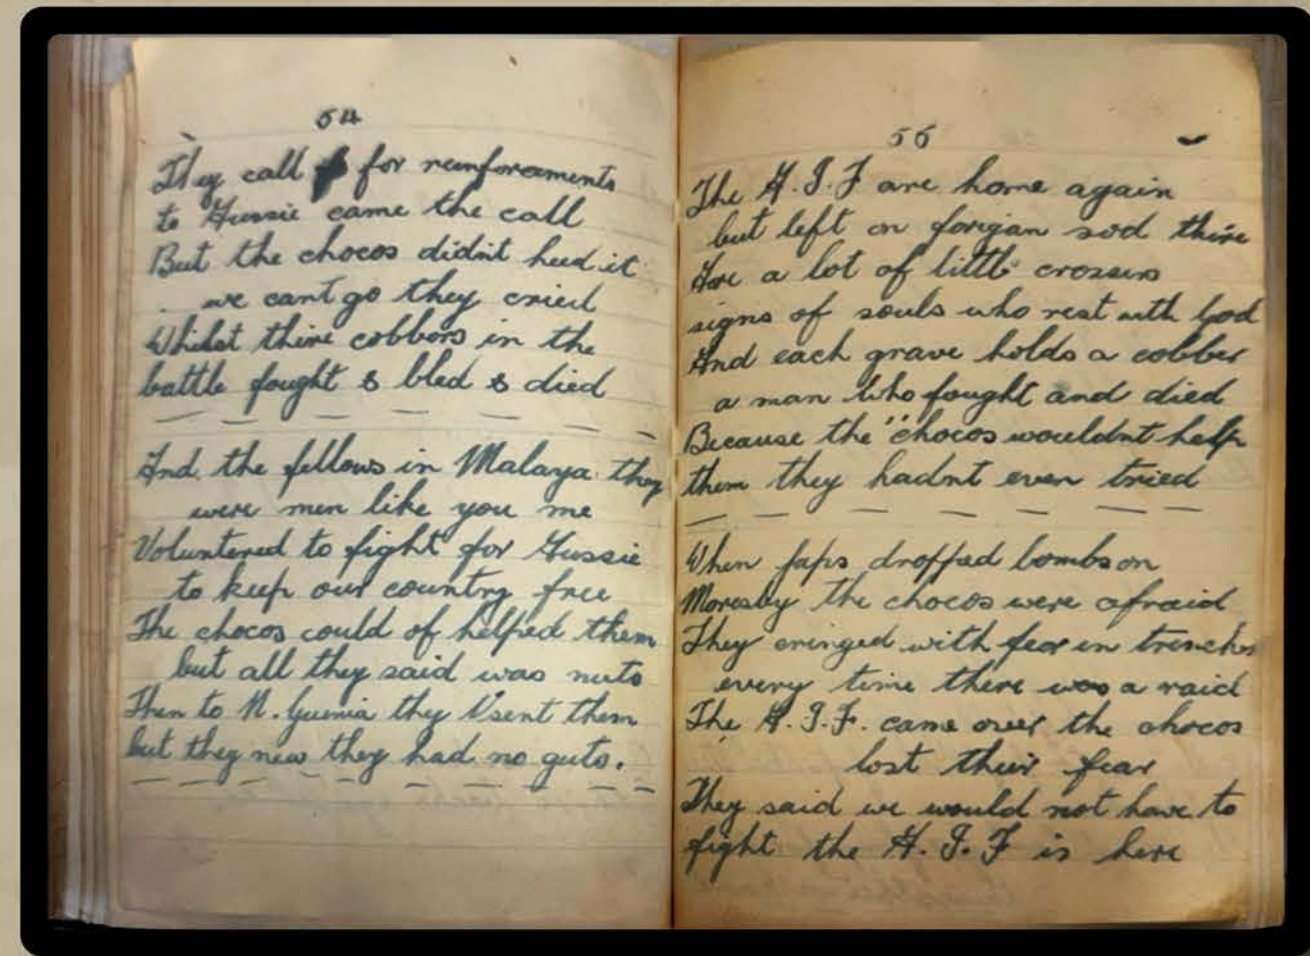 54
They call for reinforcements
to Aussie came the call
But the chocos didn't heed it
we cant go they cried
Whilst thire cobbers in the
battle fought & bled & died
And the fellows in Malaya they
were men like you me
Voluntered to fight for Aussie
to keep our country free
The chocos could of helped them
but all they said was nuts
Then to N. Guenia they sent them
but they new they had no guts.
55
The A.I.F are home again
but left on forigan sod thire
Are a lot of little crossers
signs of souls who rest with God
And each grave holds a cobber
a man who fought and died
Because the "chocos wouldnt help
them they hadnt even tried
When japs dropped bombs on
Moresby the chocos were afraid
They cringed with fear in trenches
every time there was a raid
The A.I.F. came over the chocos
lost their fear
They said we would not have to
fight the A.I.F is here